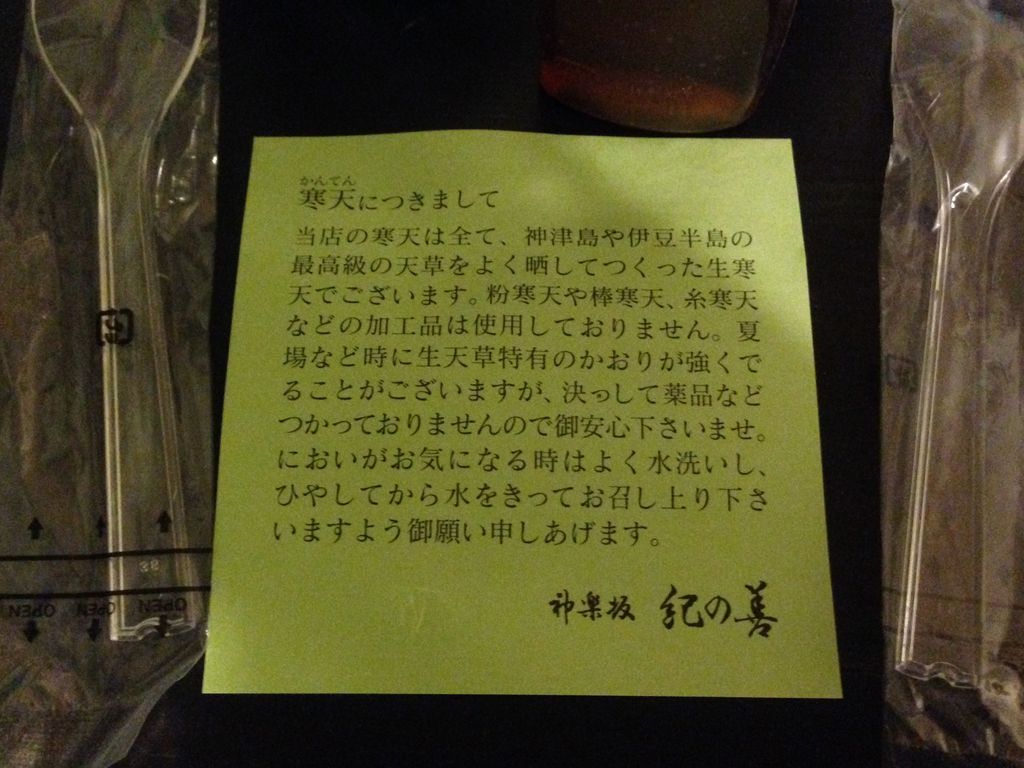 かんてん
寒天につきまして
当店の寒天は全て、神津島や伊豆半島の
最高級の天草をよく晒してつくった生寒
天でございます。粉寒天や棒寒天、糸寒天
などの加工品は使用しておりません。夏
場など時に生天草特有のかおりが強くで
ることがございますが、決っして薬品など
つかっておりませんので御安心下さいませ。
においがお気になる時はよく水洗いし、
ひやしてから水をきってお召し上り下さ
いますよう御願い申しあげます。
神楽坂 紀の善
プラ
OPEN OPEN OPEN